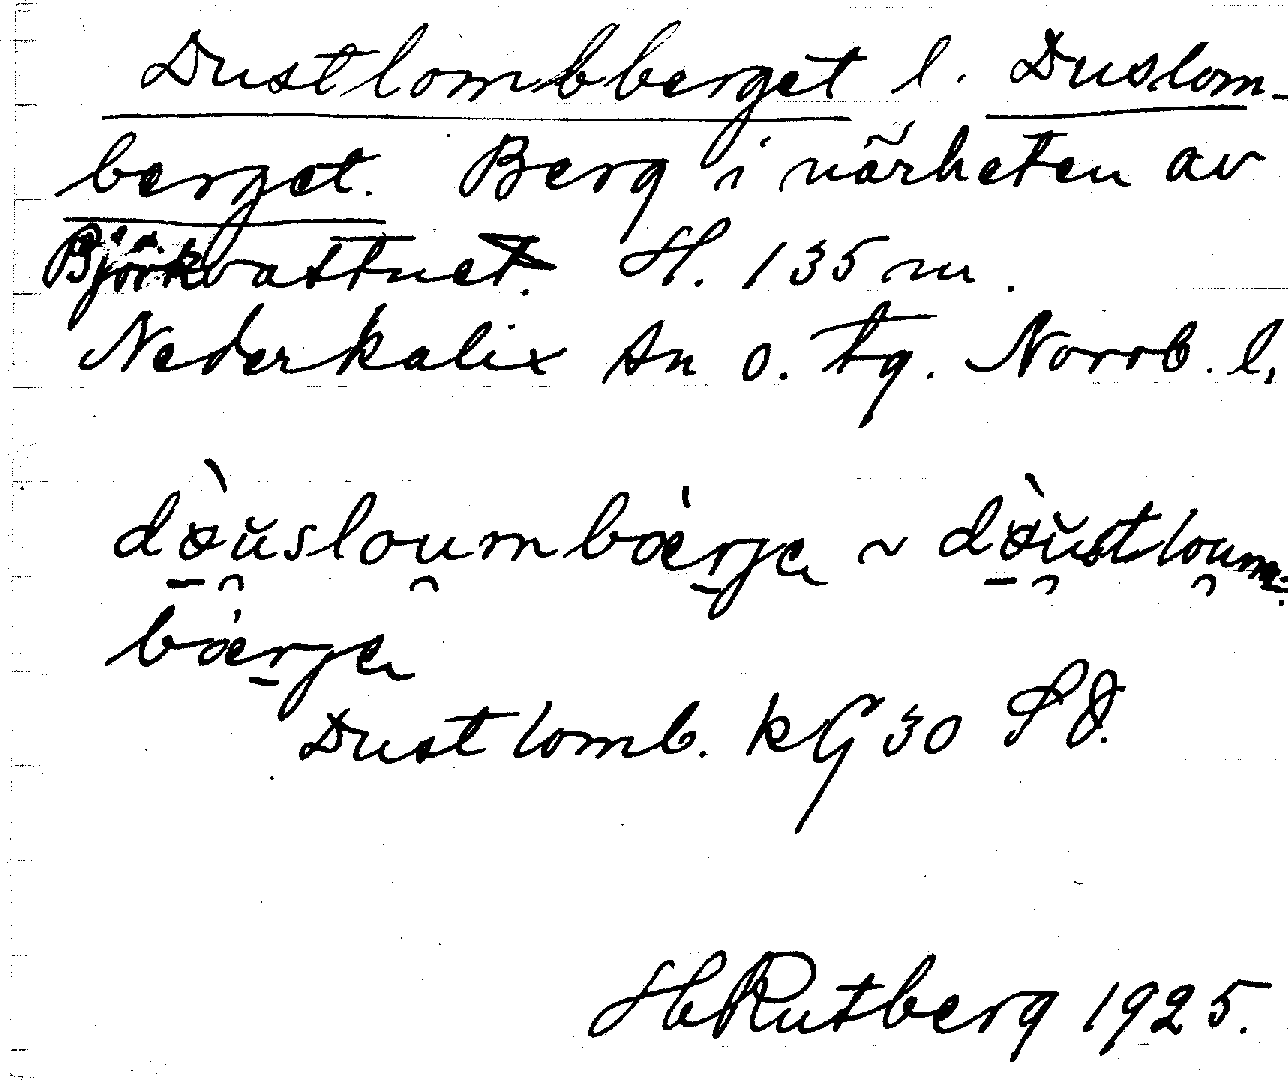 Dustlombberget l. Duslom-
berget. Berg i närheten av
Björkvattnet. H. 135 m.
Nederkalix sn o. tg. Norrb. l.
dɷ̀u̯sloumbærge ~ dɷ̀u̯stloum-
bærge
Dustlomb. kG 30 SO.
H Rutberg 1925.